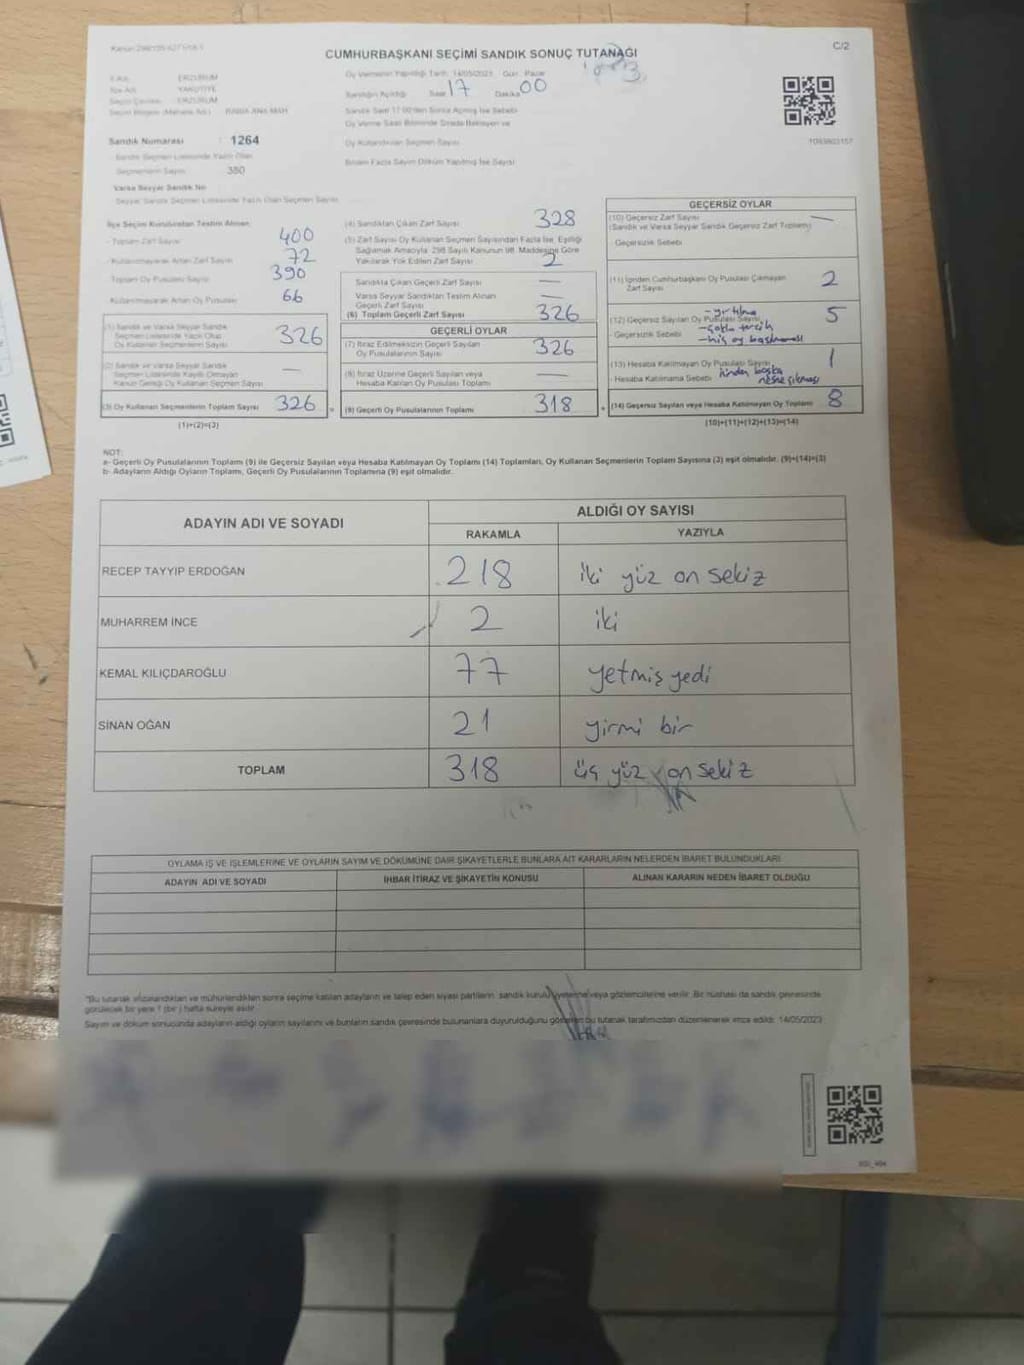 C/2
CUMHURBAŞKANI SEÇİMİ SANDIK SONUÇ TUTANAĞI
Oy Vermenin Yapıldığı Tarih: 14/05/2023 Gün: Pazar
İl Adı ERZURUM
İlçe Adı YAKUTİYE
Seçim Çevresi ERZURUM
Seçim Bölgesi (Mahalle Adı) RABİA ANA MAH
Sandığın Açıldığı Saat 17 Dakika 00
Sandık Saat 17.00'den Sonra Açılmış İse Sebebi
Oy Verme Saati Bitiminde Sırada Bekleyen ve
Oy Kullandırılan Seçmen Sayısı
Sandık Numarası : 1264
Sandık Seçmen Listesinde Yazılı Olan
Seçmenlerin Sayısı 380
Birden Fazla Sayım Döküm Yapılmış İse Sayısı
Varsa Seyyar Sandık No
Seyyar Sandık Seçmen Listesinde Yazılı Olan Seçmen Sayısı
İlçe Seçim Kurulundan Teslim Alınan
- Toplam Zarf Sayısı 400
- Kullanılmayarak Artan Zarf Sayısı 72
Toplam Oy Pusulası Sayısı 390
Kullanılmayarak Artan Oy Pusulası 66
(1) Sandık ve Varsa Seyyar Sandık
Seçmen Listesinde Yazılı Olup
Oy Kullanan Seçmenlerin Sayısı 326
(2) Sandık ve Varsa Seyyar Sandık
Seçmen Listesinde Kayıtlı Olmayan
Kanun Gereği Oy Kullanan Seçmen Sayısı —
(3) Oy Kullanan Seçmenlerin Toplam Sayısı 326
(1)+(2)=(3)
(4) Sandıktan Çıkan Zarf Sayısı 328
(5) Zarf Sayısı Oy Kullanan Seçmen Sayısından Fazla İse, Eşitliği
Sağlamak Amacıyla 298 Sayılı Kanunun 98. Maddesine Göre
Yakılarak Yok Edilen Zarf Sayısı 2
Sandıkta Çıkan Geçerli Zarf Sayısı —
Varsa Seyyar Sandıktan Teslim Alınan
Geçerli Zarf Sayısı —
(6) Toplam Geçerli Zarf Sayısı 326
GEÇERLİ OYLAR
(7) İtiraz Edilmeksizin Geçerli Sayılan
Oy Pusulalarının Sayısı 326
(8) İtiraz Üzerine Geçerli Sayılan veya
Hesaba Katılan Oy Pusulası Toplamı —
(9) Geçerli Oy Pusulalarının Toplamı 318
GEÇERSİZ OYLAR
(10) Geçersiz Zarf Sayısı —
(Sandık ve Varsa Seyyar Sandık Geçersiz Zarf Toplamı)
- Geçersizlik Sebebi
(11) İçinden Cumhurbaşkanı Oy Pusulası Çıkmayan
Zarf Sayısı 2
(12) Geçersiz Sayılan Oy Pusulası Sayısı 5
- Geçersizlik Sebebi
- yırtılma
- çoklu tercih
- hiç oy basılmamış
(13) Hesaba Katılmayan Oy Pusulası Sayısı 1
- Hesaba Katılmama Sebebi
başka
nesne çıkması
(14) Geçersiz Sayılan veya Hesaba Katılmayan Oy Toplamı 8
(10)+(11)+(12)+(13)=(14)
NOT:
a- Geçerli Oy Pusulalarının Toplamı (9) ile Geçersiz Sayılan veya Hesaba Katılmayan Oy Toplamı (14) Toplamları, Oy Kullanan Seçmenlerin Toplam Sayısına (3) eşit olmalıdır. (9)+(14)=(3)
b- Adayların Aldığı Oyların Toplamı, Geçerli Oy Pusulalarının Toplamına (9) eşit olmalıdır.
ADAYIN ADI VE SOYADI
ALDIĞI OY SAYISI
RAKAMLA YAZIYLA
RECEP TAYYİP ERDOĞAN 218 iki yüz on sekiz
MUHARREM İNCE 2 iki
KEMAL KILIÇDAROĞLU 77 yetmiş yedi
SİNAN OĞAN 21 yirmi bir
TOPLAM 318 üç yüz on sekiz
OYLAMA İŞ VE İŞLEMLERİNE VE OYLARIN SAYIM VE DÖKÜMÜNE DAİR ŞİKAYETLERLE BUNLARA AİT KARARLARIN NELERDEN İBARET BULUNDUKLARI
ADAYIN ADI VE SOYADI İHBAR İTİRAZ VE ŞİKAYETİN KONUSU ALINAN KARARIN NEDEN İBARET OLDUĞU
"Bu tutanak imzalandıktan ve mühürlendikten sonra seçime katılan adayların ve talep eden siyasi partilerin sandık kurulu üyelerine veya gözlemcilerine verilir. Bir nüshası da sandık çevresinde
görülecek bir yere 1 (bir) hafta süreyle asılır.
Sayım ve döküm sonucunda adayların aldığı oyların sayılarını ve bunların sandık çevresinde bulunanlara duyurulduğunu gösteren bu tutanak tarafımızdan düzenlenerek imza edildi. 14/05/2023